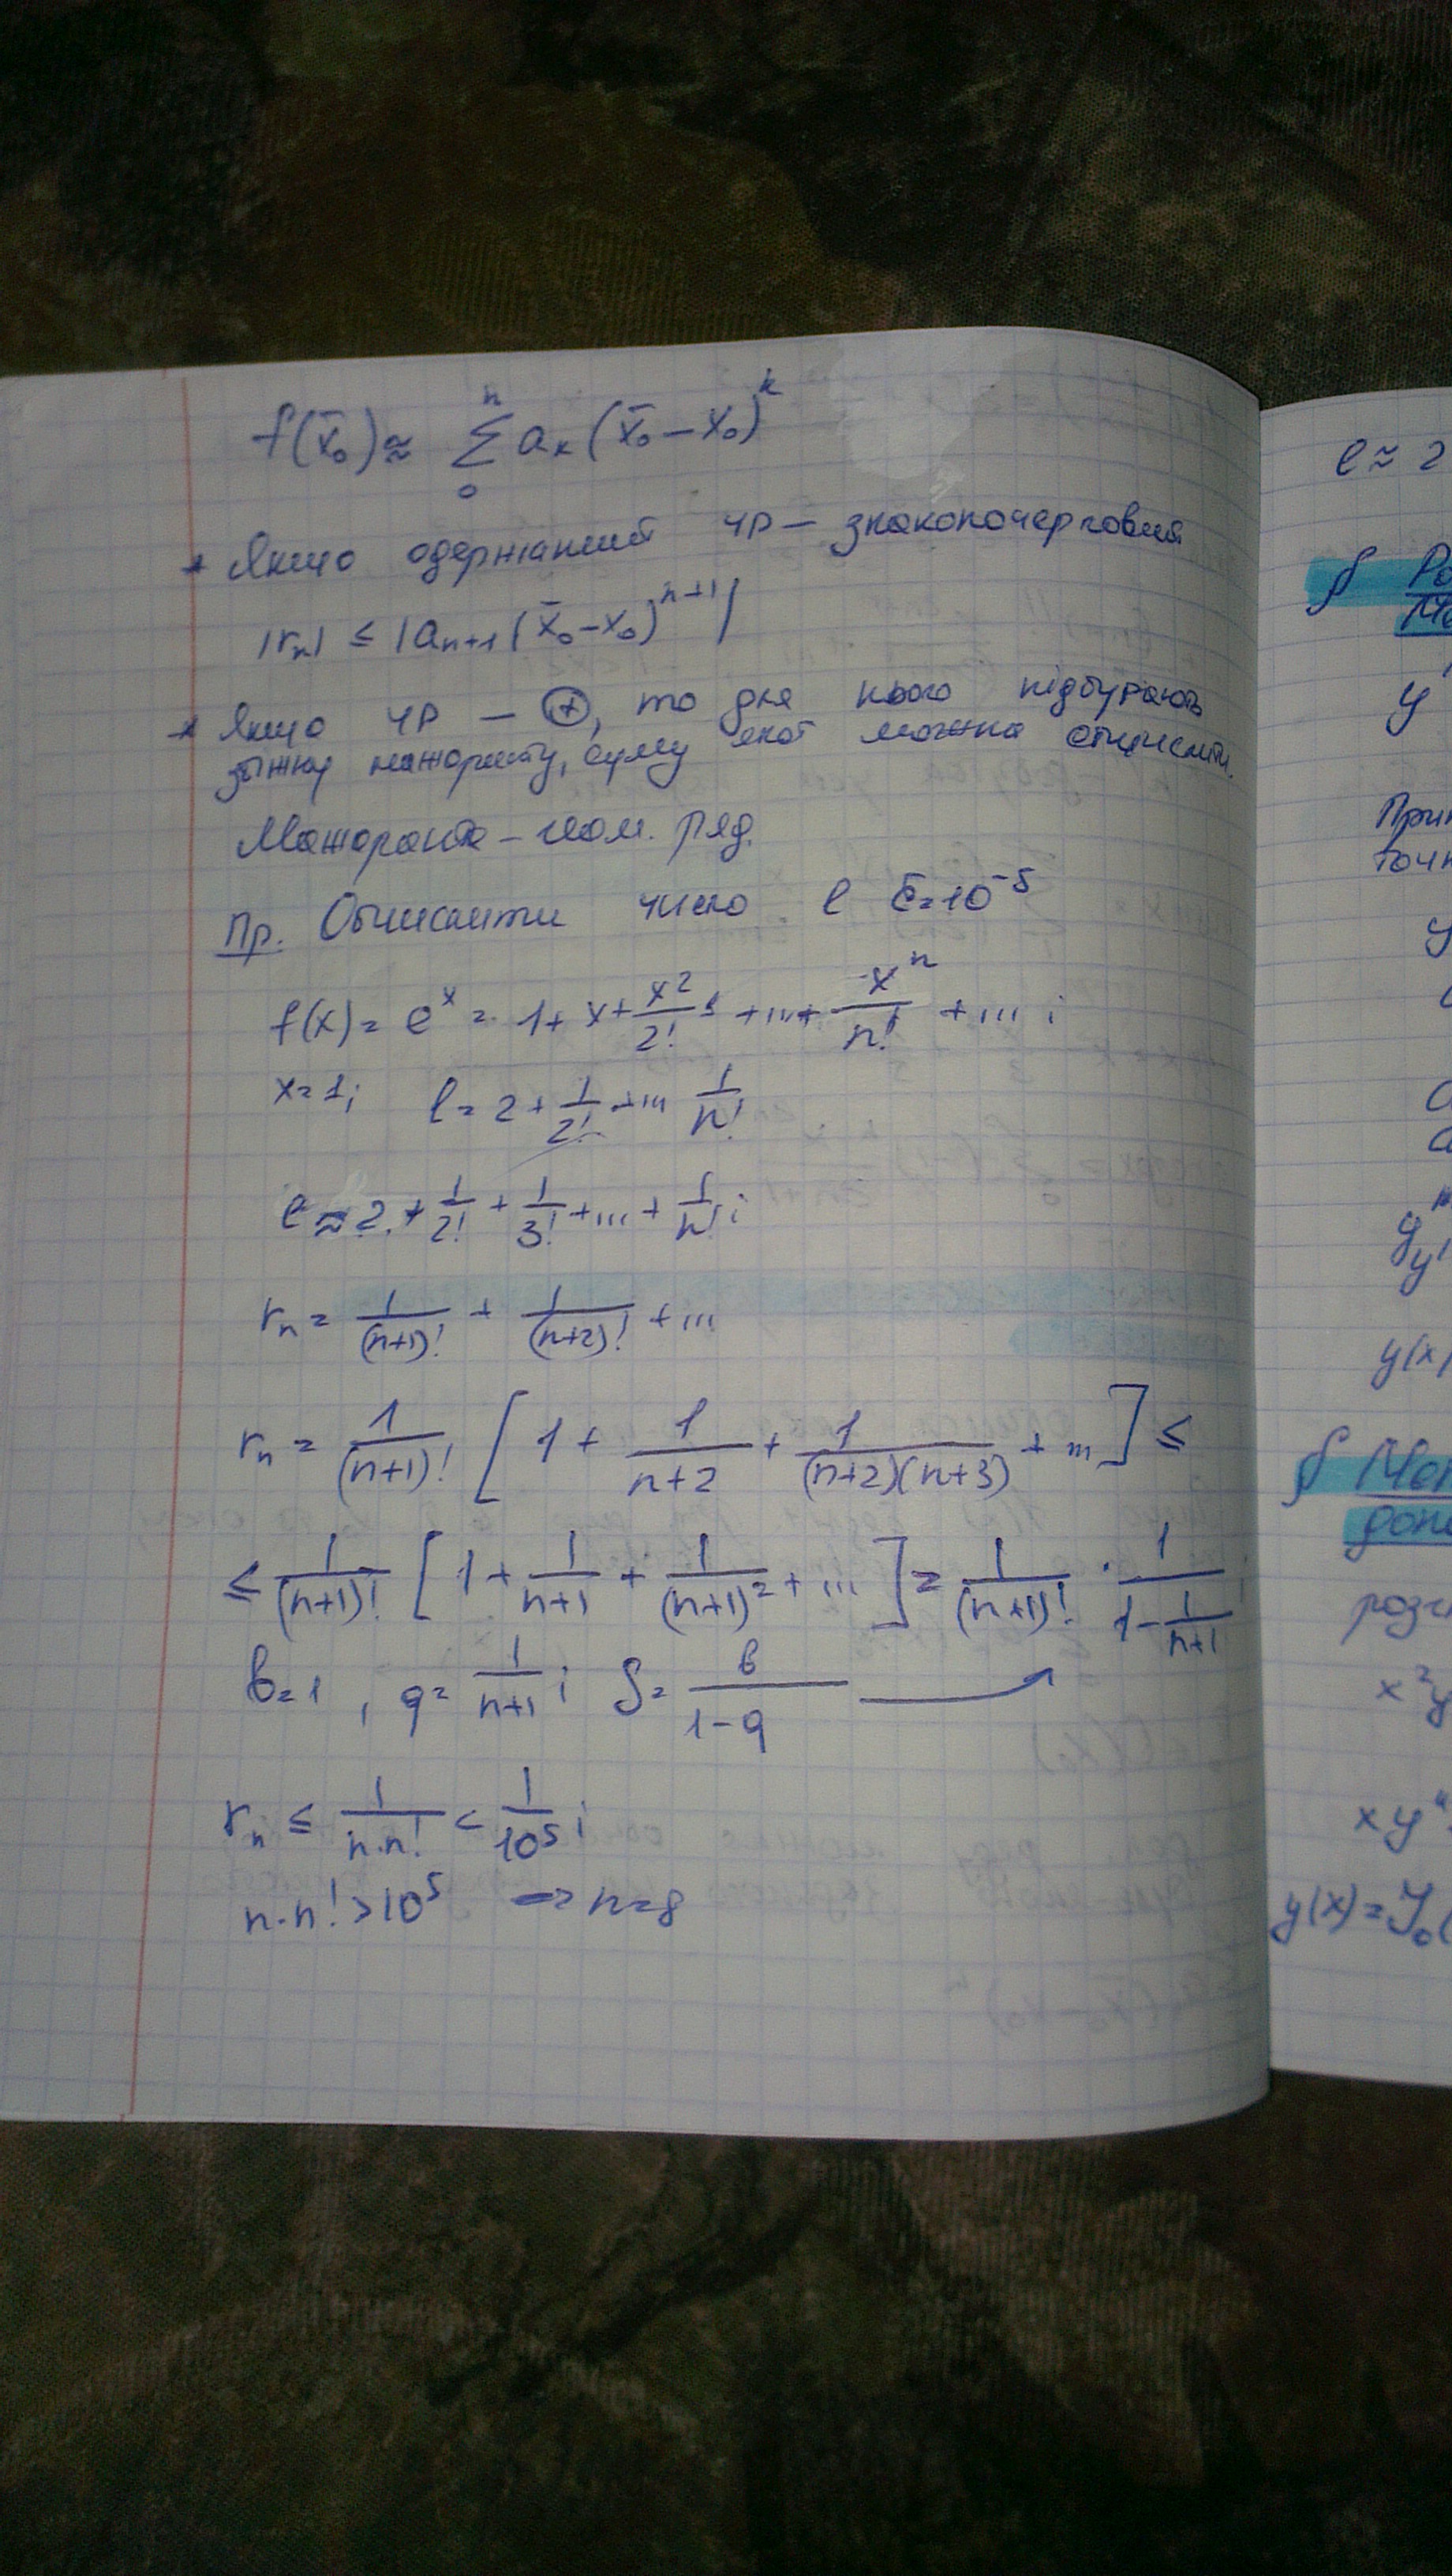 f(x̄₀) ≈ ∑₀ⁿ aₖ (x̄₀ – x₀)ᵏ
* Якщо одержаний ЧР – знакопочерговий
|rₙ| ≤ |aₙ₊₁ (x̄₀ – x₀)ⁿ⁺¹|
* Якщо ЧР – ⊕, то для нього підбирають
мажоранту, суму якої можна обчислити.
Мажоранта – геом. ряд.
Пр. Обчислити число e ε = 10⁻⁵
f(x) = eˣ = 1 + x + x²/2! + ... + xⁿ/n! + ... ;
x = 1; e = 2 + 1/2! + ... 1/n!
e ≈ 2 + 1/2! + 1/3! + ... + 1/n! ;
rₙ = 1/(n+1)! + 1/(n+2)! + ...
rₙ = 1/(n+1)! [ 1 + 1/(n+2) + 1/((n+2)(n+3)) + ... ] ≤
≤ 1/(n+1)! [ 1 + 1/(n+1) + 1/(n+1)² + ... ] = 1/(n+1)! · 1/(1 – 1/(n+1)) ;
b = 1 , q = 1/(n+1) ; S = b/(1–q) →
rₙ ≤ 1/(n·n!) < 1/10⁵ ;
n·n! > 10⁵ → n = 8
e ≈ 2
§
y
y(x)
§
x²y
xy"
y(x) = y₀(